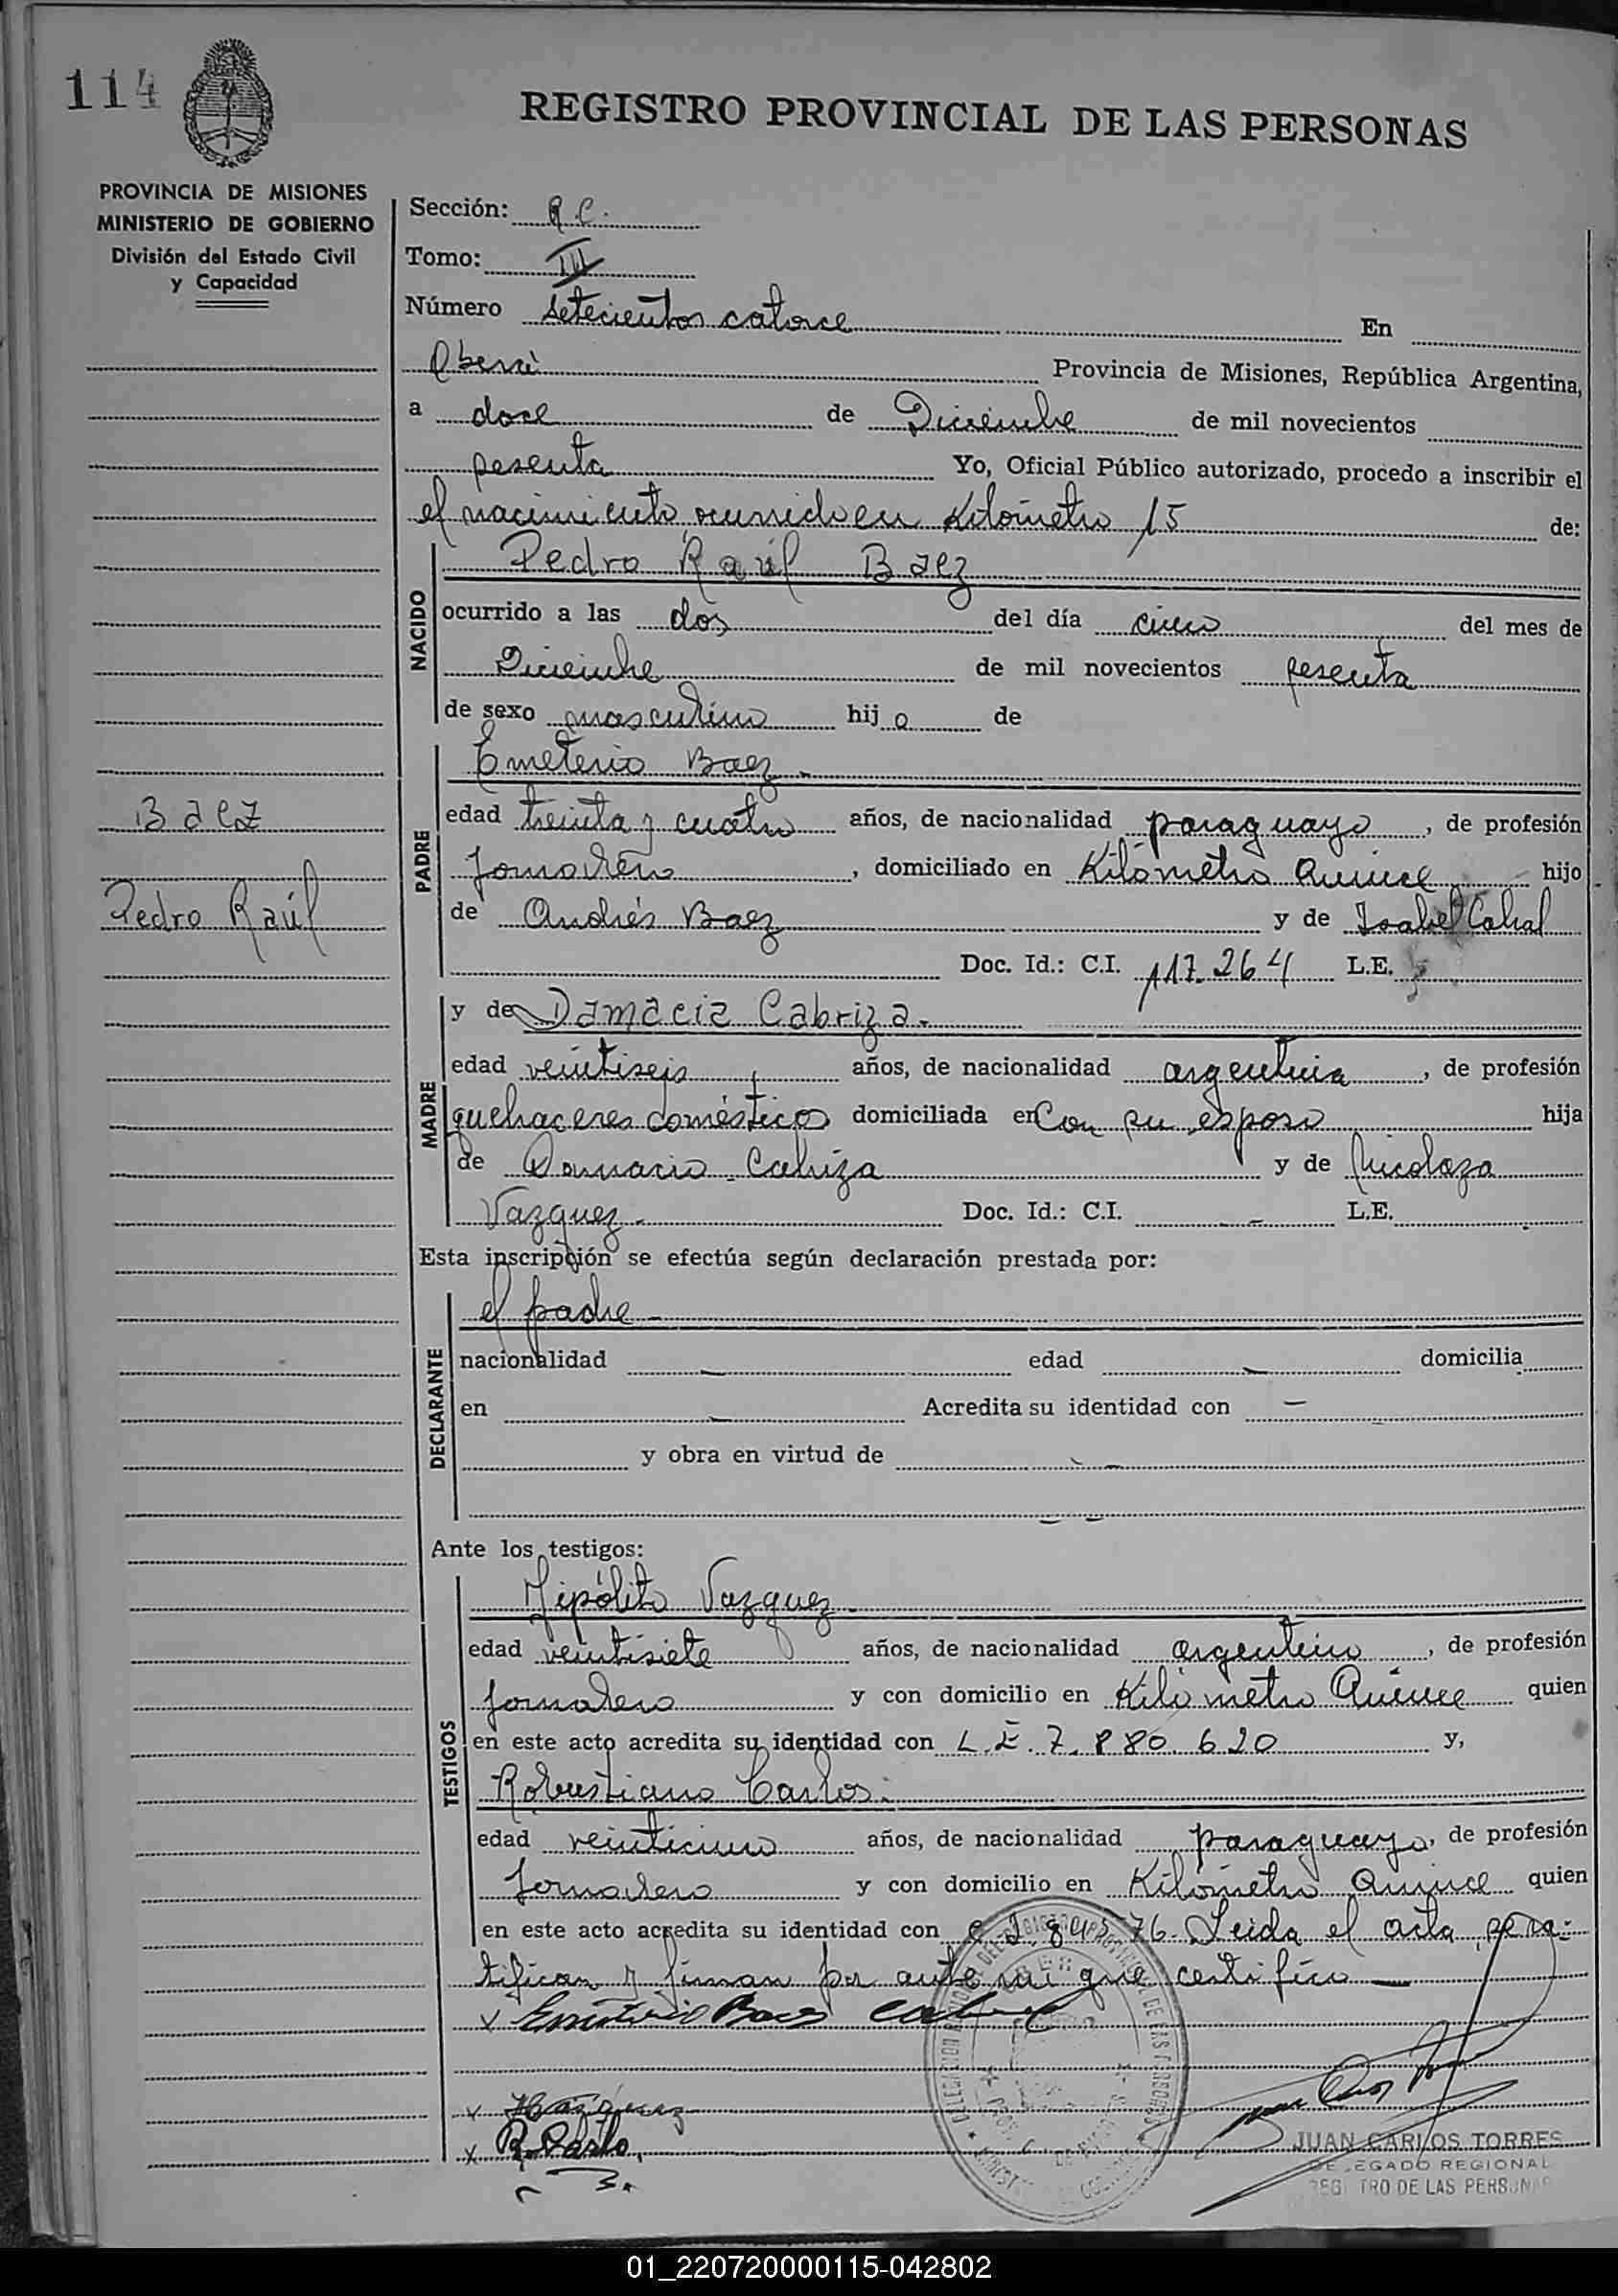 114
REGISTRO PROVINCIAL DE LAS PERSONAS
PROVINCIA DE MISIONES
MINISTERIO DE GOBIERNO
División del Estado Civil
y Capacidad
Sección: R.C.
Tomo: III
Número setecientos catorce En
Oberá Provincia de Misiones, República Argentina,
a doce de Diciembre de mil novecientos
sesenta Yo, Oficial Público autorizado, procedo a inscribir el
el nacimiento ocurrido en Kilómetro 15 de:
NACIDO
Pedro Raúl Baez
ocurrido a las dos del día cinco del mes de
Diciembre de mil novecientos sesenta
de sexo masculino hijo de
PADRE
Emeterio Baez
edad treinta y cuatro años, de nacionalidad paraguayo, de profesión
Jornalero, domiciliado en Kilómetro Quince hijo
de Andrés Baez y de Isabel Cabral
Doc. Id.: C.I. 117.264 L.E.
Baez
Pedro Raúl
MADRE
y de Damacia Cabriza.
edad veintiseis años, de nacionalidad argentina, de profesión
quehaceres domésticos domiciliada en Con su esposo hija
de Damacio Cabriza y de Nicolaza
Vazquez.- Doc. Id.: C.I. - L.E.
Esta inscripción se efectúa según declaración prestada por:
DECLARANTE
el padre -
nacionalidad — edad — domicilia
en — Acredita su identidad con —
y obra en virtud de —
Ante los testigos:
TESTIGOS
Hipólito Vazquez.
edad veintisiete años, de nacionalidad argentino, de profesión
jornalero y con domicilio en Kilómetro Quince quien
en este acto acredita su identidad con L.E. 7.880.620 y,
Robustiano Carlos.
edad veinticinco años, de nacionalidad paraguayo, de profesión
Jornalero y con domicilio en Kilómetro Quince quien
en este acto acredita su identidad con 76. Leida el acta se ra-
tifican y firman por ante mi que certifico —
x Emeterio Baez
x H Vázquez
x R. Carlo
JUAN CARLOS TORRES
DELEGADO REGIONAL
REGISTRO DE LAS PERSONAS
01_220720000115-042802